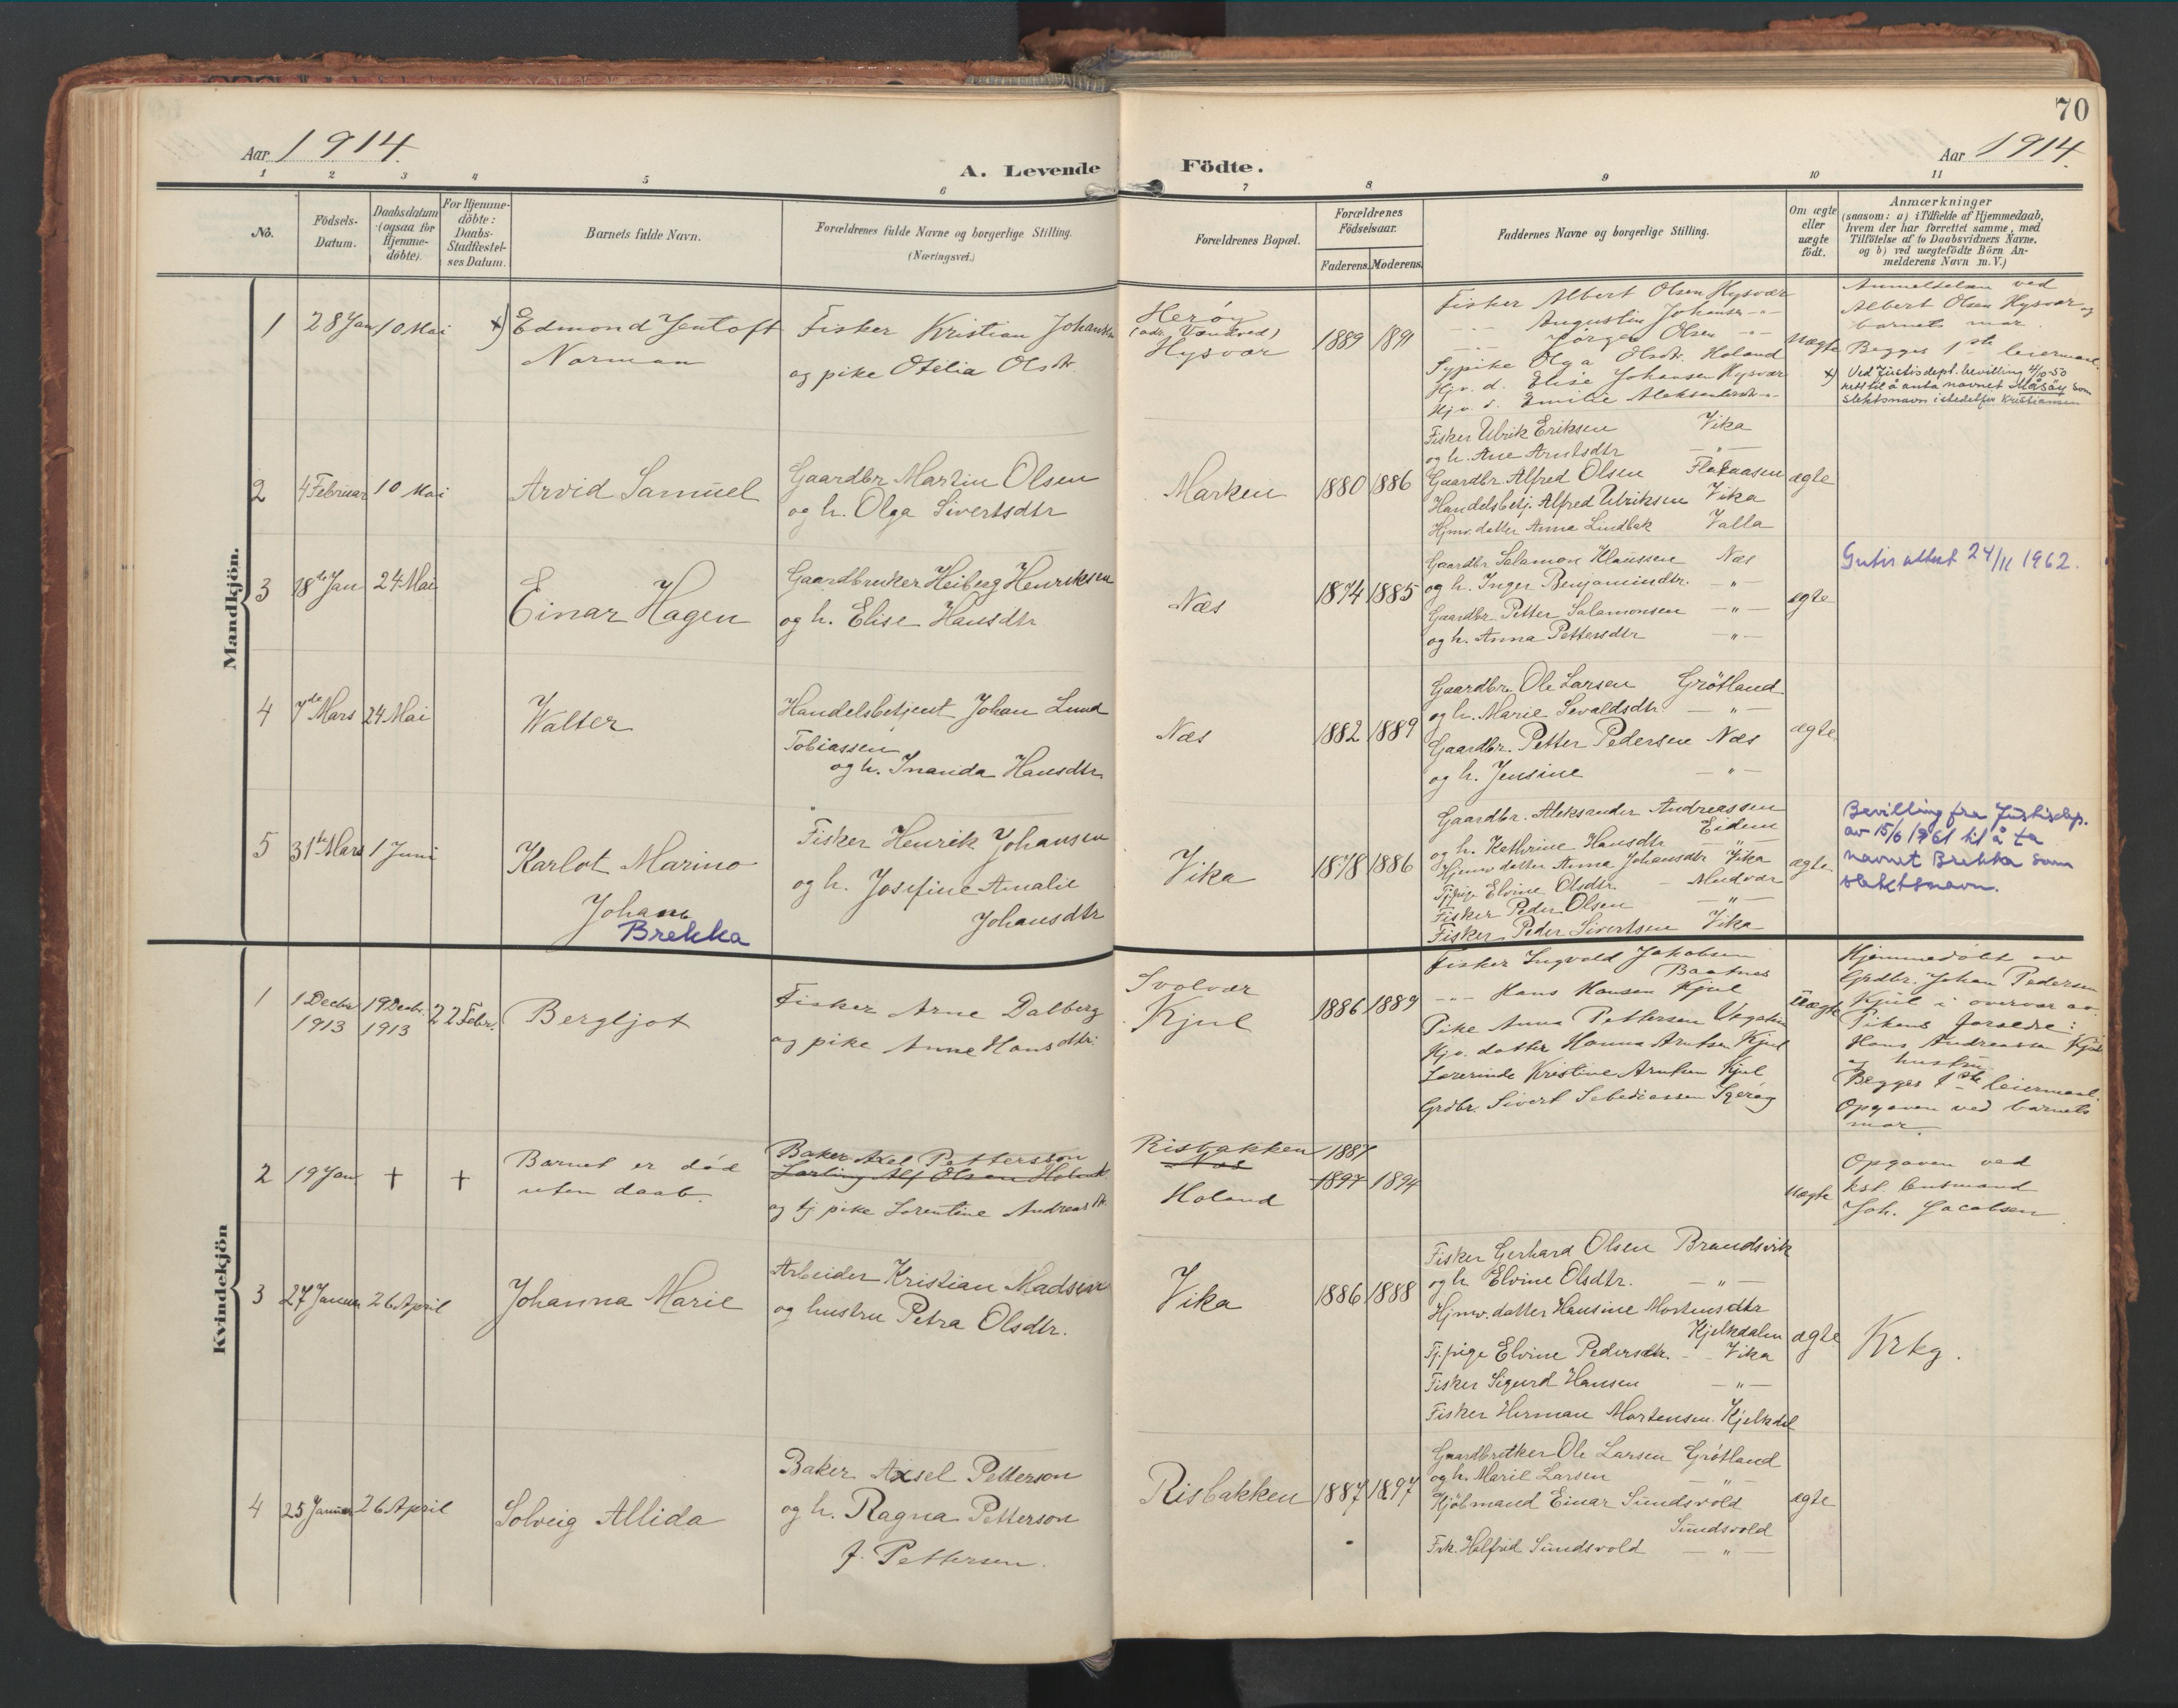 70
Aar 1914.
A. Levende Födte.
Aar 1914.
1 2 3 4 5 6 7 8 9 10 11
No.
Födsels-
Datum.
Daabsdatum
(ogsaa for
Hjemme-
döbte).
For Hjemme-
döbte:
Daabs-
Stadfæstel-
ses Datum.
Barnets fulde Navn.
Forældrenes fulde Navne og borgerlige Stilling.
(Næringsvei.)
Forældrenes Bopæl.
Forældrenes
Födselsaar.
Faderens. Moderens.
Faddernes Navne og borgerlige Stilling.
Om ægte
eller
uægte
födt.
Anmærkninger
(saasom: a) i Tilfælde af Hjemmedaab,
hvem der har forrettet samme, med
Tilföielse af to Daabsvidners Navne.
og b) ved uægtefödte Börn An-
melderens Navn m. V.)
Mandkjön.
1
28 Jan
10 Mai
x) Edmond Jentoft
Norman
Fisker Kristian Johansen
og pike Otelia Olsdt.
Herøy
Hysvær
1889 1891
Fisker Albert Olsen Hysvær
-"- Augustin Johansen -"-
-"- Jörgen Olsen -"-
Sypike Olga Olsdt. Holand
Hjv. d. Elise Johansen Hysvær
Hjv. d. Emilie Aleksandersdt -"-
uægte
Anmeldelsen ved
Albert Olsen Hysvær og
barnets mor.
Begges 1ste leiermaal.
x) Ved Justisdept. bevilling 4/10-50
rett til å anta navnet Måsöy som
slektsnavn i stedet for Kristiansen
2
4 Februar
10 Mai
Arvid Samuel
Gaardbr Martin Olsen
og h. Olga Sivertsdtr
Marken
1880 1886
Fisker Ulrik Eriksen Vika
og h. Ane Arntsdtr -"-
Gaardbr Alfred Olsen Flataasen
Handelsbetj. Alfred Ulriksen Vika
Hjmv. datter Anna Lindbak Valla
ægte
3
18de Jan
24 Mai
Einar Hagen
Gaardbruker Heiberg Henriksen
og h. Elise Hansdtr
Næs
1874 1885
Gaardbr Salamon Klaussen Næs
og h. Inger Benjamindtr. -"-
Gaardbr. Petter Salamonsen -"-
og h. Anna Pettersdtr -"-
ægte
attest 24/11 1962.
4
7de Mars
24 Mai
Walter
Handelsbetjent Johan Lund
Tobiassen
og h. Inanda Hansdtr
Næs
1882 1889
Gaardbr. Ole Larsen Grötland
og h. Marie Sevaldsdtr. -"-
Gaardbr. Petter Pedersen Næs
og h. Jensine -"-
ægte
5
31te Mars
1 Juni
Karlot Marino
Johan
Brekka
Fisker Henrik Johansen
og h. Josefine Amalie
Johansdtr
Vika
1878 1886
Gaardbr. Aleksander Andreassen
Eidem
og h. Kathrine Hansdtr -"-
Hjmv datter Anna Johansdtr Vika
Tj.pige Elvine Olsdtr. - Mudvær
Fisker Peder Olsen -"-
Fisker Peder Sivertsen Vika
ægte
Bevilling fra Justisdep.
av 15/6 1961 til å ta
navnet Brekka som
slektsnavn.
Kvindekjön
1
1 Decbr
1913
19 Decbr.
1913
22 Febr.
Bergljot
Fisker Arne Dalberg
og pike Anne Hansdtr.
Svolvær
Kjul
1886 1889
Fisker Ingvald Jakobsen
Baatnes
-"- Hans Hansen Kjul
Pike Anna Pettersen
Hjv. datter Hanna Arntsen Kjul
Lærerinde Kristine Arntsen Kjul
Grdbr. Sivert
uægte
Hjemmedöbt av
Grdbr. Johan Pedersen
Kjul i overvær av
Pikens forældre:
Hans Andreassen Kjul
og hustru
Begges 1ste leiermaal.
Opgaven ved barnets
mor.
2
19 Jan
+
+
Barnet er död
uten daab.
Baker Axel Pettersson
Lærling Alf Olsen
og tj pike Lorentine Andreasdt.
Risbakken
Næs
Holand
1887
1897 1894
uægte
Opgaven ved
kst. lensmand
Joh. Jacobsen
3
27 Januar
26 April
Johanna Marie
Arbeider Kristian Madsen
og hustru Petra Olsdtr.
Vika
1886 1888
Fisker Gerhard Olsen Brandsvik
og h Elvine Olsdtr. -"-
Hjmv. datter Hansine Mortensdtr
Kjelkdalen
Tj.pige Elvine Pedersdtr. - - Vika
Fisker Sigurd Hansen -"-
Fisker Herman Mortensen. Kjelkdal
ægte
Krkg.
4
25 Januar
26 April
Solveig Allida
Baker Axsel Petterson
og h. Ragna Petterson
f. Pettersen.
Risbakken
1887 1897
Gaardbruker Ole Larsen Grötland
og h. Marie Larsen -"-
Kjöbmand Einar Sundsvold
Sundsvold
Frk. Halfrid Sundsvold -"-
ægte